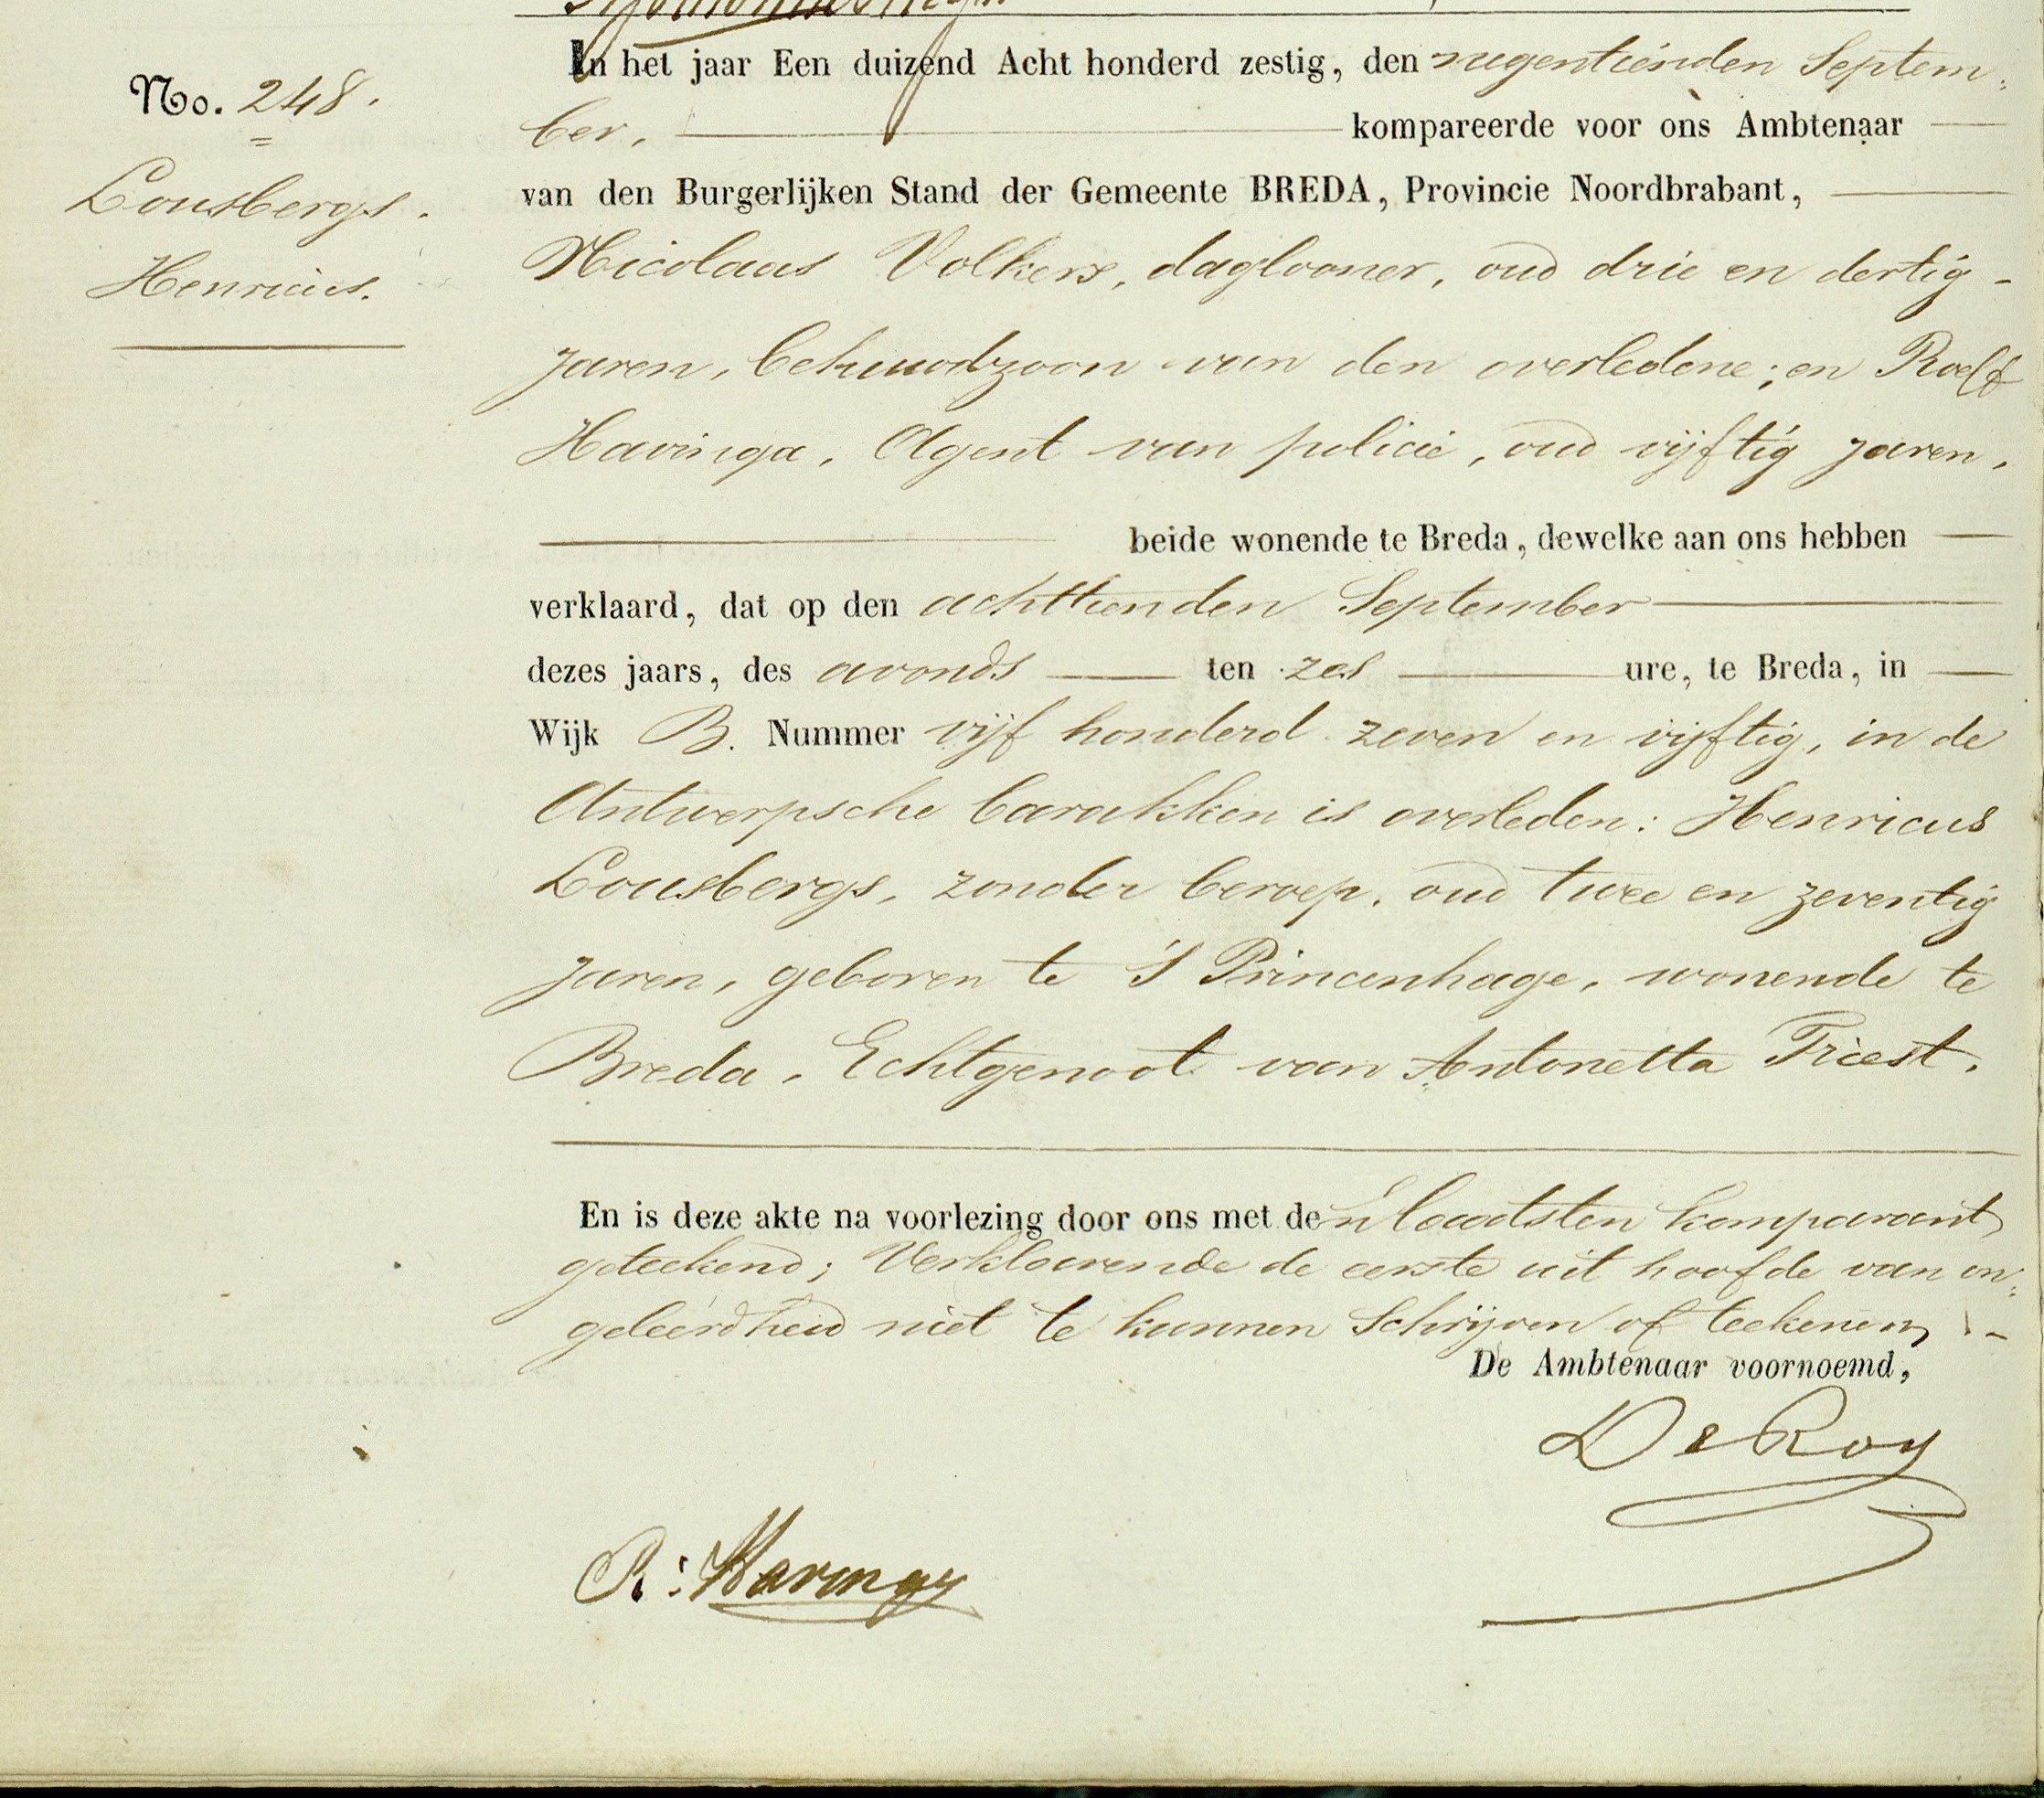 No. 248.
Lousbergs.
Henricus.
In het jaar Een duizend Acht honderd zestig, den negentienden Septem:
ber, kompareerde voor ons Ambtenaar
van den Burgerlijken Stand der Gemeente BREDA, Provincie Noordbrabant,
Nicolaas Volkers, daglooner, oud drie en dertig
jaren, behuwdzoon van den overledene; en Roelf
Havinga, Agent van policie, oud vijftig jaren,
beide wonende te Breda, dewelke aan ons hebben
verklaard, dat op den achttienden September
dezes jaars, des avonds ten zes ure, te Breda, in
Wijk B. Nummer vijf honderd zeven en vijftig, in de
Antwerpsche barakken is overleden: Henricus
Lousbergs, zonder beroep, oud twee en zeventig
jaren, geboren te 's Princenhage, wonende te
Breda, Echtgenoot van Antonetta Triest.
En is deze akte na voorlezing door ons met den laatsten komparant
geteekend; Verklarende de eerste uit hoofde van on:
geleerdheid niet te kunnen Schrijven of teekenen.
De Ambtenaar voornoemd,
De Roy
R: Havinga